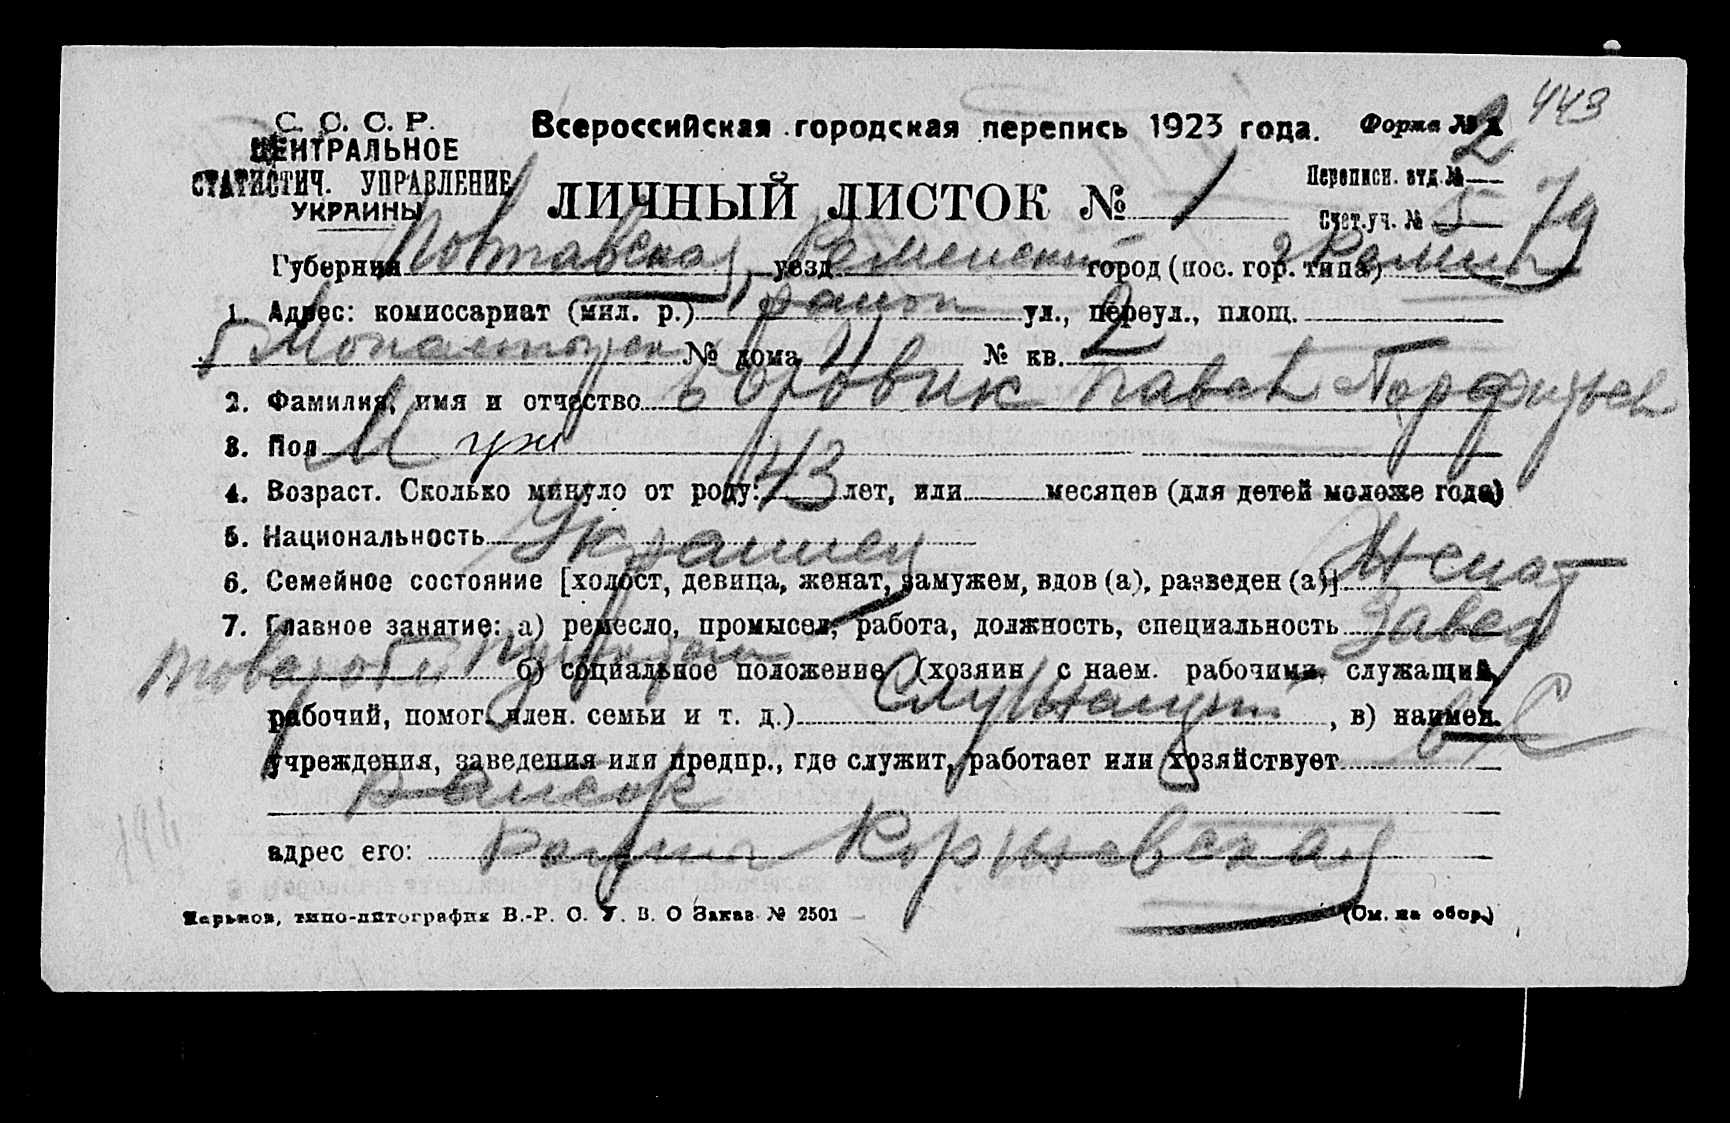 443
С. С. С. Р.
ЦЕНТРАЛЬНОЕ
СТАТИСТИЧ. УПРАВЛЕНИЕ
УКРАИНЫ
Всероссийская городская перепись 1923 года. Форма № 2
ЛИЧНЫЙ ЛИСТОК № 1
Переписн. отд. №
Счет. уч. № 5 79
Губерния Полтавская, уезд Роменский город (пос. гор. типа) г Ромны
1. Адрес: комиссариат (мил. р.) 1 район ул., переул., площ.
№ дома 11 № кв. 2
2. Фамилия, имя и отчество Боровик Павел
3. Пол Муж
4. Возраст. Сколько минуло от роду: 43 лет, или месяцев (для детей моложе года)
5. Национальность Украинец
6. Семейное состояние [холост, девица, женат, замужем, вдов (а), разведен (а)] Женат
7. Главное занятие: а) ремесло, промысел, работа, должность, специальность Завед
б) социальное положение (хозяин с наем. рабочими, служащий,
рабочий, помог. член. семьи и т. д.) Служащий, в) наимен.
учреждения, заведения или предпр., где служит, работает или хозяйствует
адрес его: Ромны Коржовская
Харьков, типо-литография В.-Р. С. У. В. О Заказ № 2501
(См. на обор.)